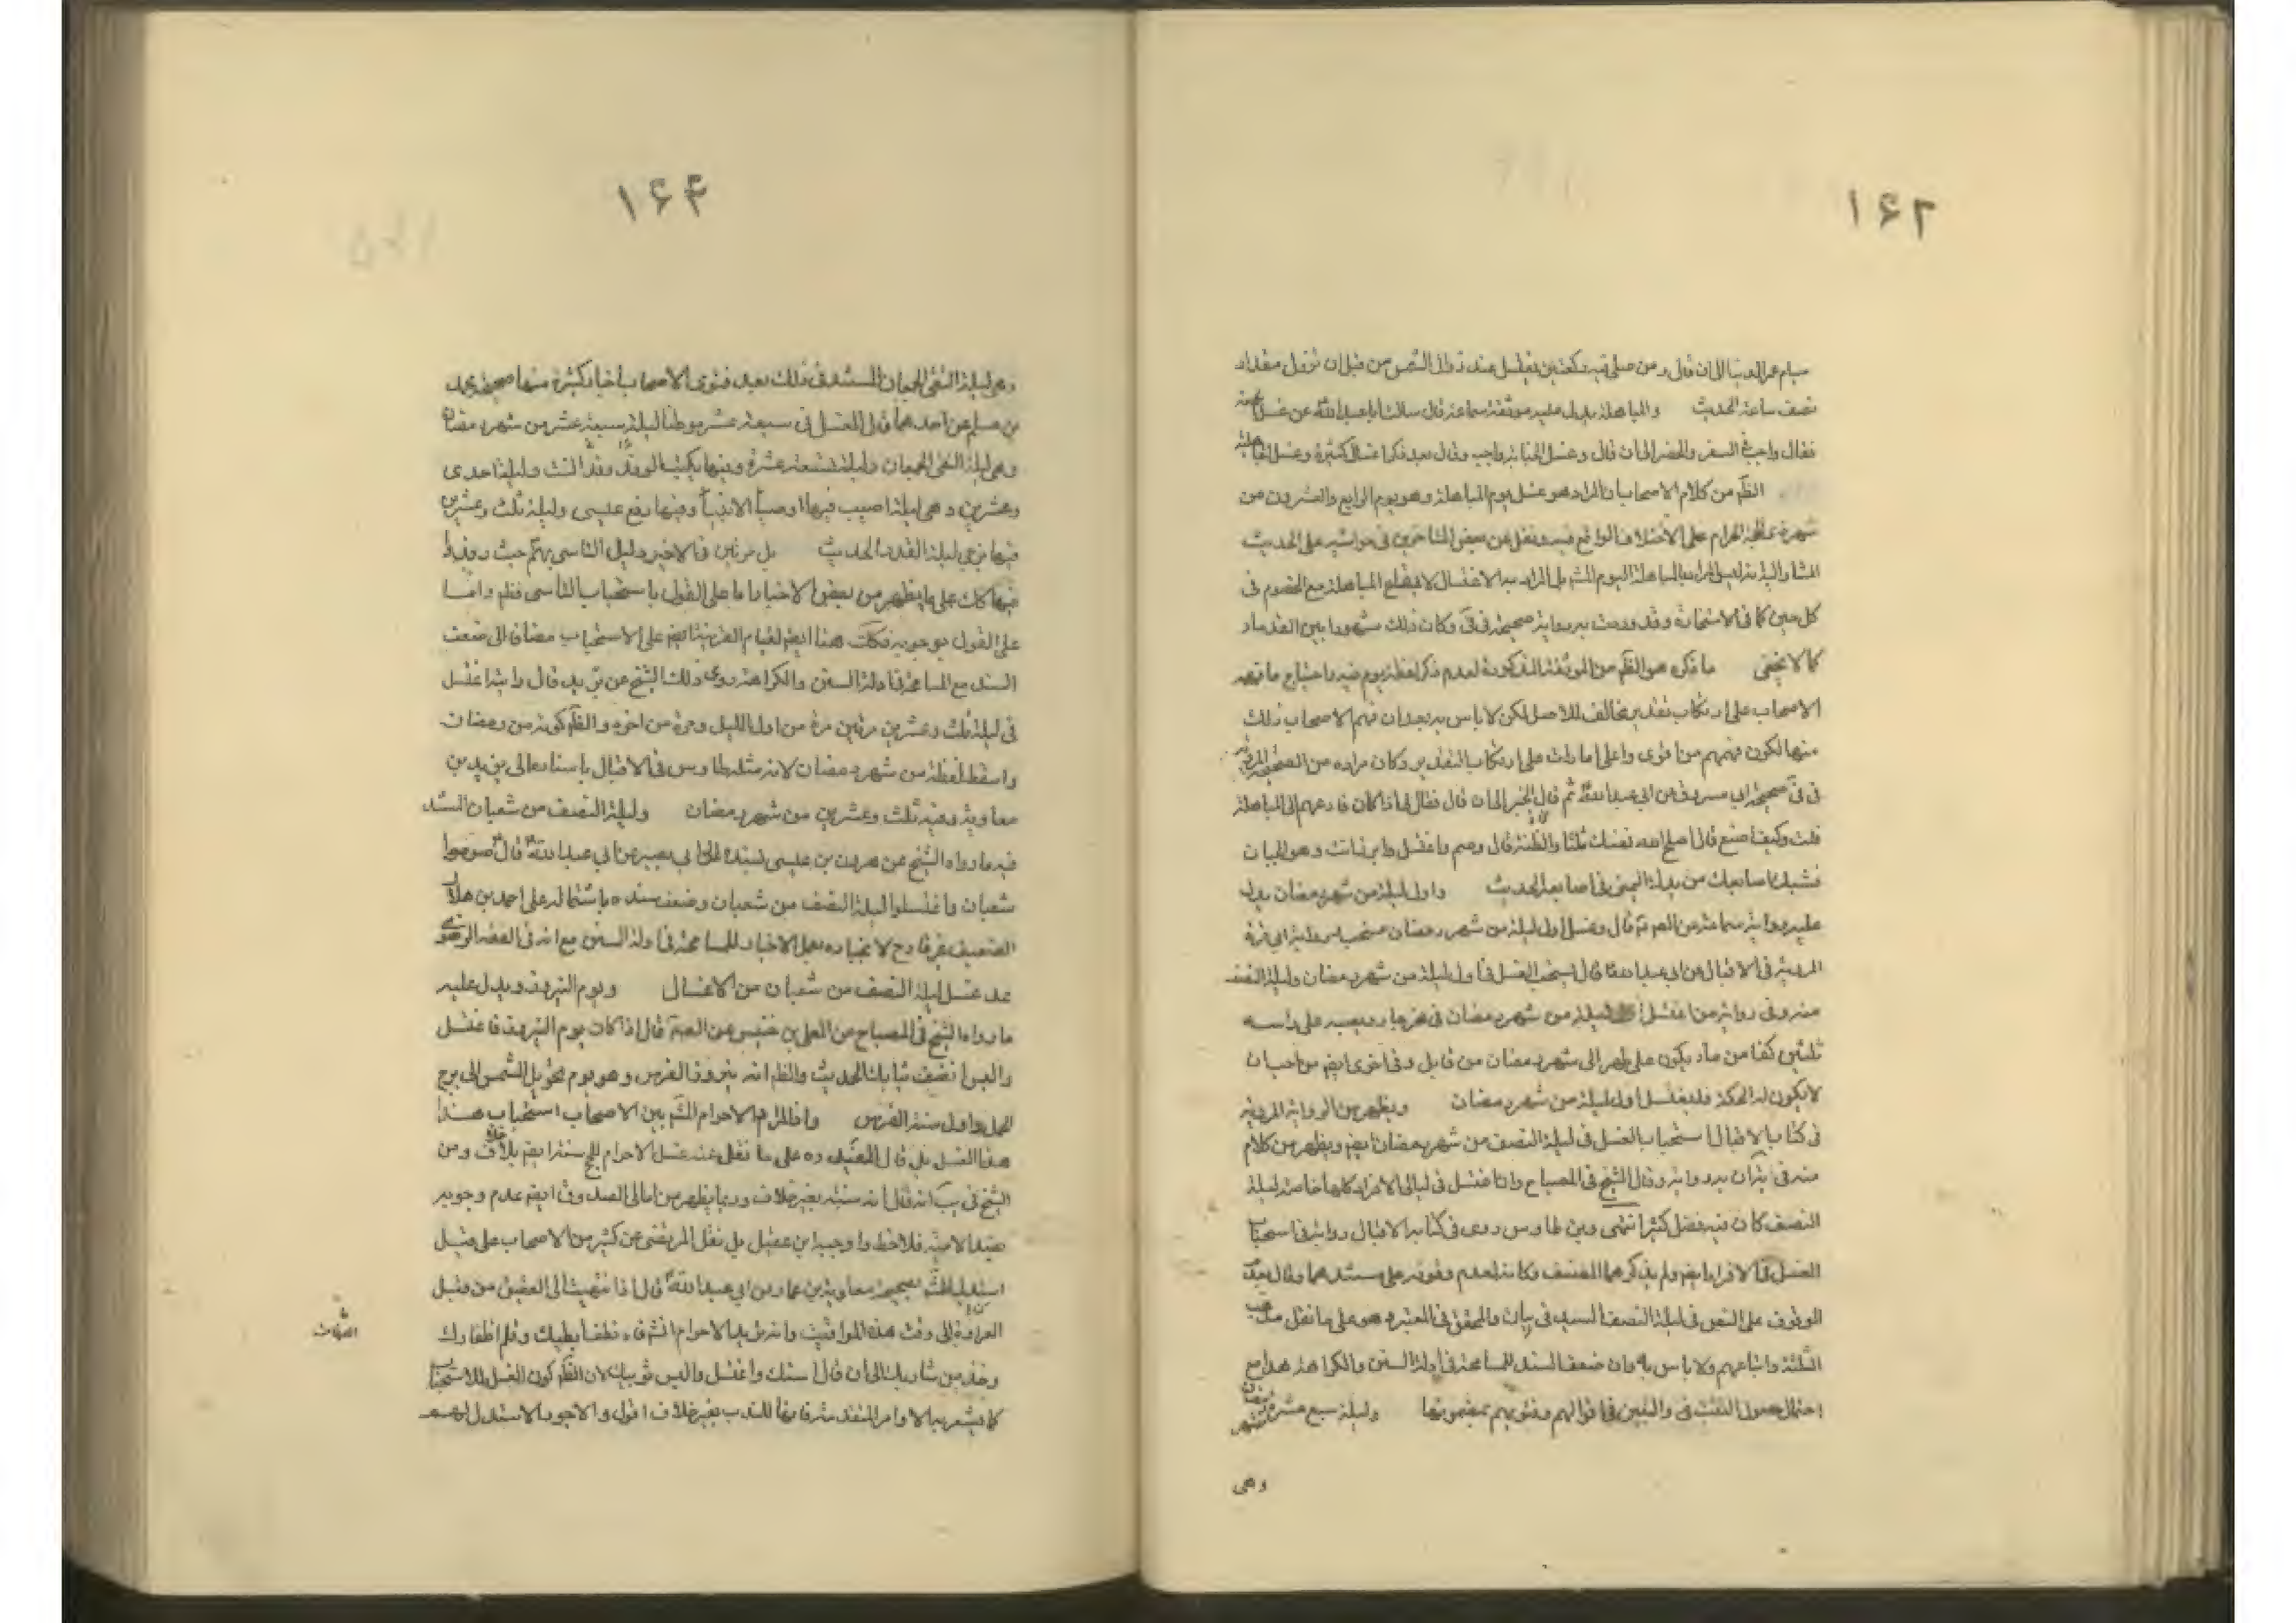 ۱۶۲
صيام عمر الدنيا الى ان قال ومن صلى فيه ركعتين يغتسل عند زوال الشمس من قبل ان تزول مقدار
نصف ساعة الحديث والمباهلة يدل عليه موثقة سماعة قال سالت ابا عبد الله عن غسل الجمعة
فقال واجب في السفر والحضر الى ان قال وغسل الجنابة واجب وقال بعد ذكر اغسال كثيرة وغسل المباهلة
الظم من كلام الاصحاب ان المراد هو غسل يوم المباهلة وهو يوم الرابع والعشرون من
شهر ذي الحجة الحرام على الاختلاف الواقع فيه ونقل عن بعض المتاخرين في حواشيه على الحديث
المشار اليه ليس المراد بالمباهلة اليوم المشهور بل المراد به الاغتسال لايقاع المباهلة مع الخصوم في
كل حين كما في الاستخارة وقد وردت به رواية صحيحة في في وكان ذلك مشهورا بين القدماء
كما لا يخفى ما ذكره هو الظم من الموثقة المذكورة لعدم ذكر لفظة يوم فيه واحتياج ما فهمه
الاصحاب على ارتكاب تقدير مخالف للاصل لكن لا باس به بعد ان فهم الاصحاب ذلك
منها لكون فهمهم من اقوى واعلى امارات على ارتكاب التقدير وكان مراده من الصحيحة المروية
في في صحيحة ابي مسروق عن ابي عبد الله ثم قال الخبر الى ان قال فقال لي اذا كان فادعهم الى المباهلة
قلت وكيف اصنع قال اصلح نفسك ثلثا واظنه قال وصم واغتسل وابرز انت وهو الى الجبان
فشبك اصابعك من يدك اليمنى في اصابعه الحديث واول ليلة من شهر رمضان يدل
عليه رواية سماعة عن الصم قال وغسل اول ليلة من شهر رمضان مستحب
المروية في الاقبال عن ابي عبد الله قال يستحب الغسل في اول ليلة من شهر رمضان وليلة النصف
منه وفي رواية من اغتسل ليلة من شهر رمضان في نهر جار ويصب على راسه
ثلثين كفا من ماء يكون على طهر الى شهر رمضان من قابل وفي اخرى ايضم من احب ان
لا يكون له الحكة فليغتسل اول ليلة من شهر رمضان ويظهر من الرواية المروية
في كتاب الاقبال استحباب الغسل في ليلة النصف من شهر رمضان ايضم ويظهر من كلام
وقال الشيخ في المصباح وان اغتسل في ليالي الافراد كلها خاصة ليلة
النصف كان فيه فضل كثير انتهى وابن طاوس روى في كتابه الاقبال رواية في استحباب
الغسل في الافراد ايضم ولم يذكرهما المصنف وكانه لعدم وقوفه على مستندهما وقال بعد
الوقوف على النص في ليلة النصف السيد في والمحقق في المعتبر هو على ما نقل مذهب
الثلثة واتباعهم ولا باس به وان ضعف السند للمسامحة في ادلة السنن والكراهة هذا مع
احتمال حصول التثبت في والتبين في اقوالهم وفتويهم بمضمونها وليلة سبع عشرة من شهر رمضان
وهي
۱۶۴
وهي ليلة التقى الجمعان المستند في ذلك بعد فتوى الاصحاب اخبار كثيرة منها صحيحة محمد
بن مسلم عن احدهما قال الغسل في سبعة عشر موطنا ليلة سبعة عشر من شهر رمضان
وهي ليلة التقى الجمعان وليلة تسعة عشرة وفيها يكتب الوفد وفد السنة وليلة احدى
وعشرين وهي ليلة اصيب فيها اوصياء الانبياء وفيها رفع عيسى وليلة ثلث وعشرين
فيها يرجى ليلة القدر الحديث بل مرتين في الاخير دليل التاسي بهم حيث
فيها كك على ما يظهر من بعض الاخبار اما على القول باستحباب التاسي فظم واما
على القول بوجوبه فكك هنا ايضم لقيام القرينة ايضم على الاستحباب مضافا الى ضعف
السند مع المسامحة في ادلة السنن والكراهة روى ذلك الشيخ عن بريد قال رايته اغتسل
في ليلة ثلث وعشرين مرتين مرة من اول الليل ومرة من اخره والظم كونه من رمضان
واسقط لفظة من شهر رمضان لانه مثله طاوس في الاقبال باسناده الى بريد بن
معاوية وفيه ثلث وعشرين من شهر رمضان وليلة النصف من شعبان المستند
فيه ما رواه الشيخ عن هرون بن عيسى بسنده الى ابي بصير عن ابي عبد الله قال صوموا
شعبان واغتسلوا ليلة النصف من شعبان وضعف سنده باشتماله على احمد بن هلال
الضعيف غير قادح لانجباره بعمل الاخيار للمسامحة في ادلة السنن مع انه في الفقه الرضوي
عد غسل ليلة النصف من شعبان من الاغسال ويوم النيروز ويدل عليه
ما رواه الشيخ في المصباح عن المعلى بن خنيس عن الصم قال اذا كان يوم النيروز فاغتسل
والبس انظف ثيابك الحديث والظم انه نيروز الفرس وهو يوم تحويل الشمس الى برج
الحمل واول سنة الفرس واذا لزم الاحرام المشم بين الاصحاب استحباب هذا
هذا الغسل بل قال المفيد ره على ما نقل عنه غسل الاحرام للحج سنة ايضم بلا خلاف ومن
الشيخ في يب انه قال انه سنة بغير خلاف وربما يظهر من امالي الصدوق ايضم عدم وجوبه
عند الامامية فلاحظ واوجبه ابن عقيل بل نقل المرتضى عن كثير من الاصحاب على قيل
استدل المشم بصحيحة معاوية بن عمار عن ابي عبد الله قال اذا انتهيت الى العقيق من قبل
العراق او الى وقت من هذه المواقيت وانت تريد الاحرام انشم فانتف ابطيك وقلم اظفارك
وخذ من شاربك الى ان قال استك واغتسل والبس ثوبيك لان الظم كون الغسل للاستحباب
كما يشعر به الاوامر المتقدمة المتفق انها للندب بغير خلاف اقول والاجود الاستدلال لهم